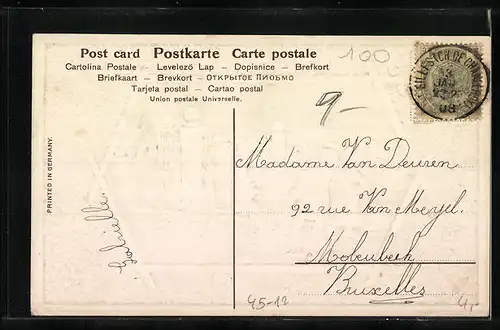 Post card Postkarte Carte postale
Cartolina Postale – Levelező Lap – Dopisnice – Brefkort
Briefkaart – Brevkort – ОТКРЫТОЕ ПИСЬМО
Tarjeta postal – Cartao postal
Union postale Universelle.
100
9-
Madame Van Deuren
92 rue Van Meyel.
Molenbeek
Bruxelles
Gabrielle.
PRINTED IN GERMANY.
45-12